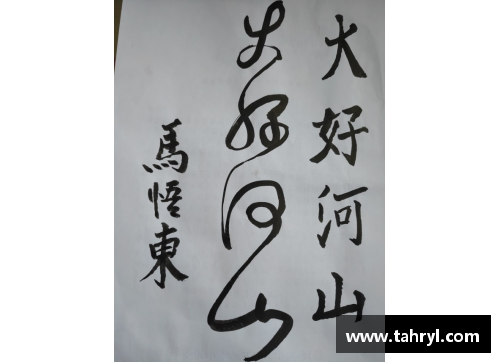 大好河山
大好河山
馬悟東
www.tahryl.com